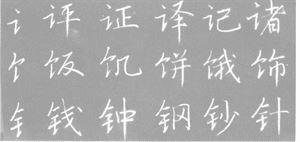 讠评证译记诸
饣饭饥饼饿饰
钅钱钟钢钞针